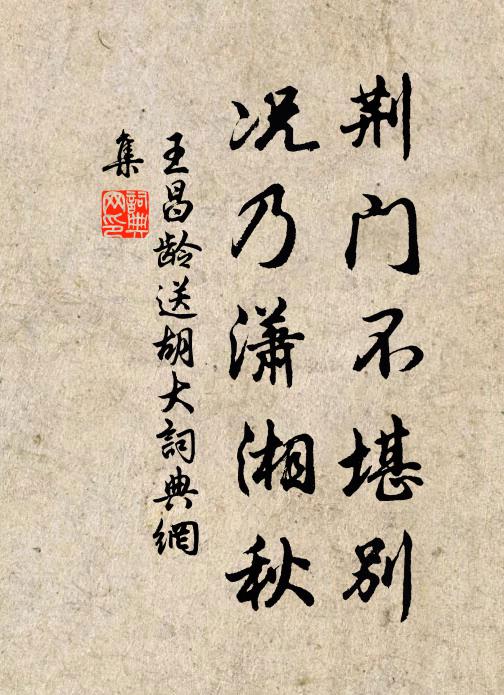 荆门不堪别
况乃潇湘秋
王昌龄送胡大词典網
集
詞典
网印